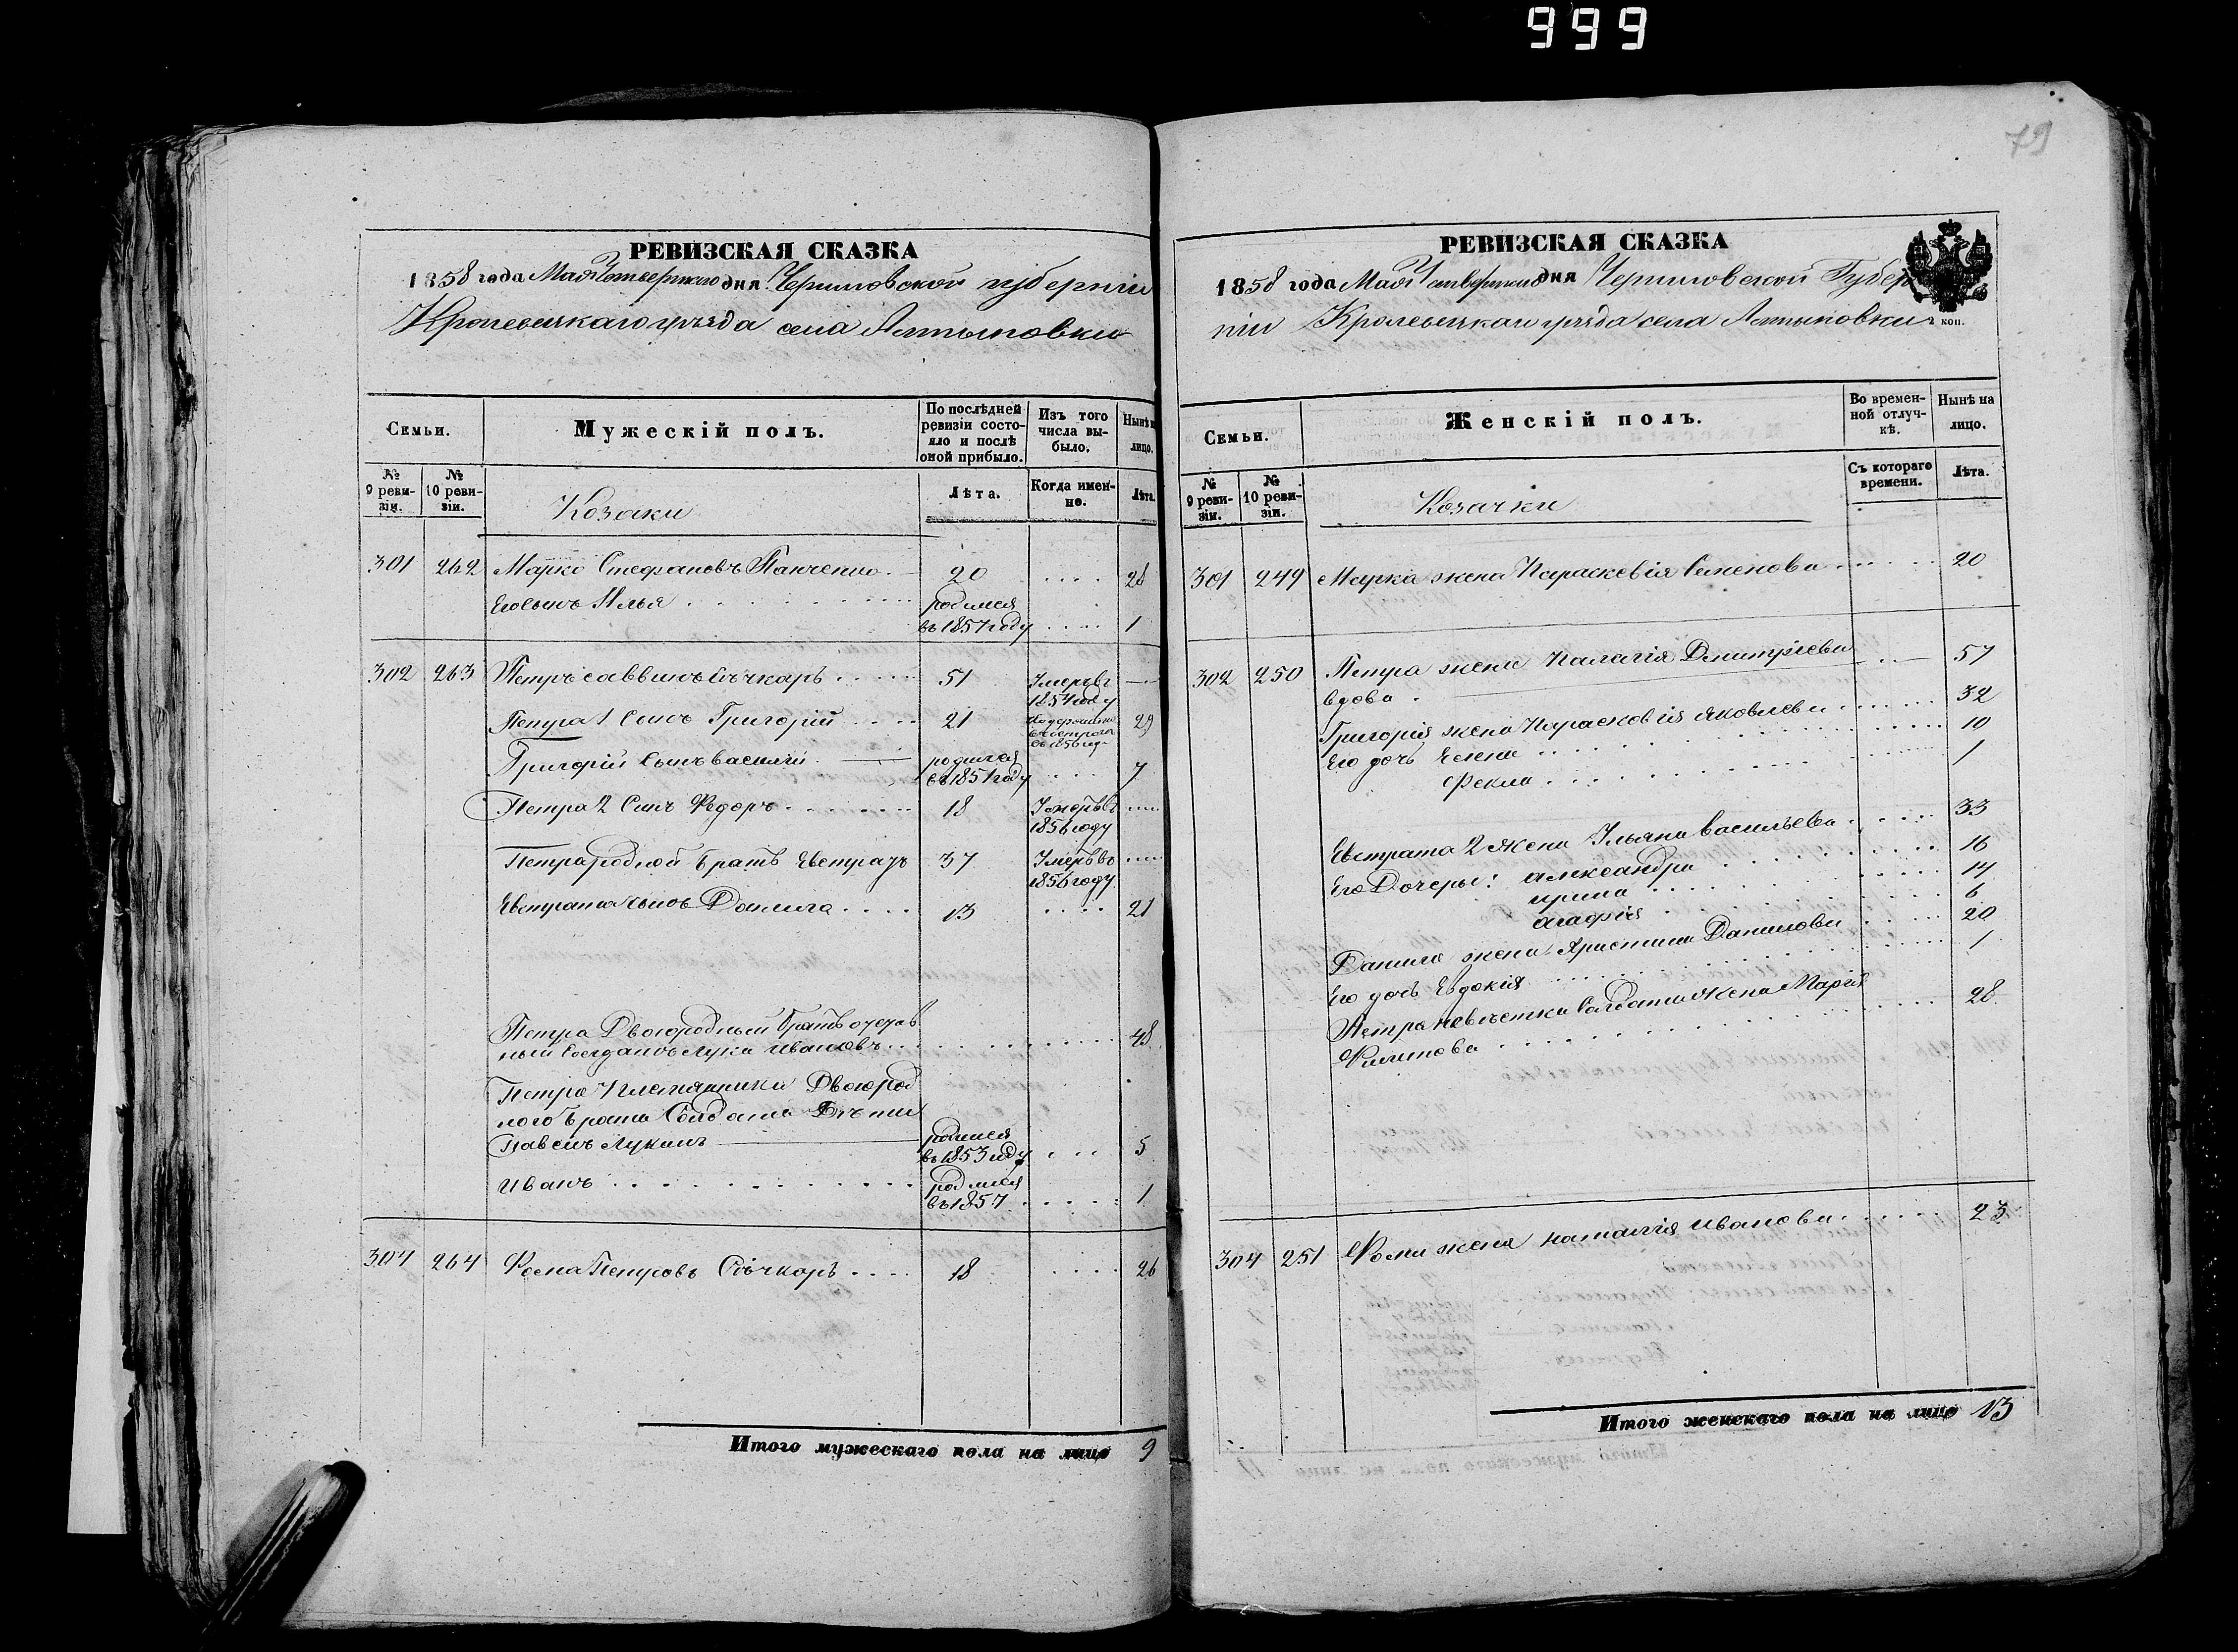 999
79
РЕВИЗСКАЯ СКАЗКА
1858 года Мая Четвертаго дня Черниговской губерніи
Кролевецкаго уѣзда села Алтыновки
Семьи.
Мужескій полъ.
По послѣдней ревизіи состояло и послѣ оной прибыло.
Изъ того числа выбыло.
Нынѣ
лицо.
№ 9 ревизіи.
№ 10 ревизіи.
Козаки
Лѣта.
Когда именно.
Лѣта.
301 262 Марко Стефановъ Панченко 20 .... 28
Его сынъ Илья родился
въ 1857 году .... 1
302 263 Петръ Саввинъ Сѣчкарь 51 Умеръ въ
1854 году
Петра 1 Сынъ Григорій 21 29
въ 1856 году
Григорій Сынъ Василій родился
въ 1851 году ... 7
Петра 2 Сынъ Федоръ 18 Умеръ въ
1856 году
Петра родной братъ Евстратъ 37 Умеръ въ
1856 году
Евстрата сынъ Данила 13 .... 21
Петра Двоюродный братъ
Лука Ивановъ 48
Петра племянники Двоюрод
ного брата Солдата Дѣти
Павелъ Лукинъ родился
въ 1853 году ... 5
Иванъ родился
въ 1857 1
304 264 Фома Петровъ Сѣчкарь 18 .... 26
Итого мужескаго пола на лицо 9
РЕВИЗСКАЯ СКАЗКА
1858 года Мая Четвертаго дня Черниговской Губер
ніи Кролевецкаго уѣзда села Алтыновки
коп.
Семьи.
Женскій полъ.
Во временной отлучкѣ.
Нынѣ на лицо.
№ 9 ревизіи.
№ 10 ревизіи.
Козачки
Съ котораго времени.
Лѣта.
301 249 Марка жена Параскевія Семенова 20
302 250 Петра жена Палагія Дмитріева 57
вдова
Григорія жена Парасковія Яковлева 32
Его дочь Елена 10
Фекла 1
Евстрата 2 жена Ульяна Васильева 33
Его Дочеры: Александра 16
Ирина 14
Агафія 6
Данила жена Христина Данилова 20
Его дочь Евдокія 1
Петра невѣстка Солдатка жена Марія 28
Филипова
304 251 Фомы жена Наталія Иванова 23
Итого женскаго пола на лицо 13